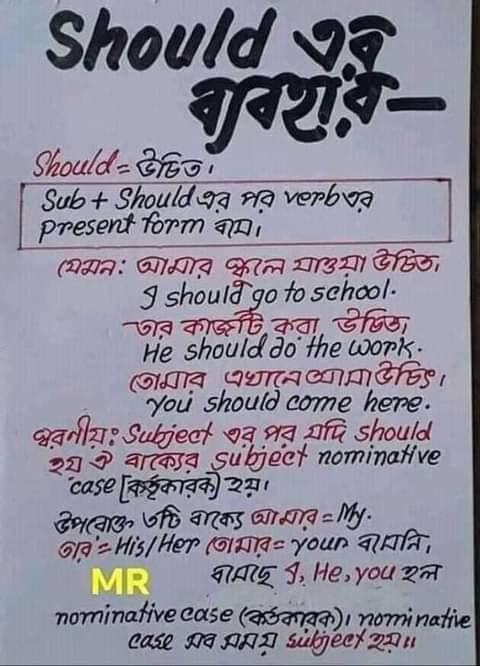 Should এর
ব্যবহার—
Should = উচিত।
Sub + Should এর পর verb এর
present form বসে।
যেমন: আমার স্কুলে যাওয়া উচিত,
I should go to school.
তার কাজটি করা উচিত,
He should do the work.
তোমার এখানে আসা উচিৎ।
you should come here.
স্বরনীয়: Subject এর পর যদি should
হয় ঐ বাক্যের subject nominative
case [কর্তৃকারক] হয়।
উপরোক্ত ৩টি বাক্যে আমার = My.
তার = His/Her তোমার = your বসেনি,
MR
বসেছে I, He, you হল
nominative case (কর্তৃকারক)। nominative
case সব সময় subject হয়॥